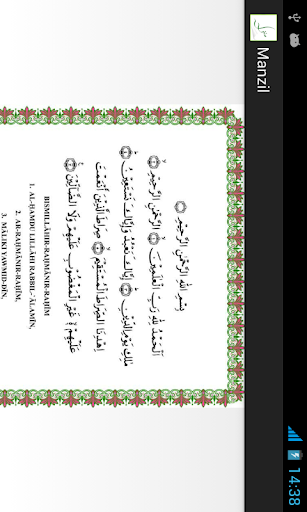 14:38
Manzil
بِسْمِ اللّٰهِ الرَّحْمٰنِ الرَّحِيْمِ ۝
اَلْحَمْدُ لِلّٰهِ رَبِّ الْعٰلَمِيْنَ ۝ الرَّحْمٰنِ الرَّحِيْمِ ۝
مٰلِكِ يَوْمِ الدِّيْنِ ۝ اِيَّاكَ نَعْبُدُ وَاِيَّاكَ نَسْتَعِيْنُ ۝
اِهْدِنَا الصِّرَاطَ الْمُسْتَقِيْمَ ۝ صِرَاطَ الَّذِيْنَ اَنْعَمْتَ
عَلَيْهِمْ ۙ غَيْرِ الْمَغْضُوْبِ عَلَيْهِمْ وَلَا الضَّآلِّيْنَ ۝
BISMILLÂHIR-RAḤMÂNIR-RAḤÎM
1. AL-ḤAMDU LILLÂHI RABBIL-'ÂLAMÎN,
2. AR-RAḤMÂNIR-RAḤÎM,
3. MÂLIKI YAWMID-DÎN,